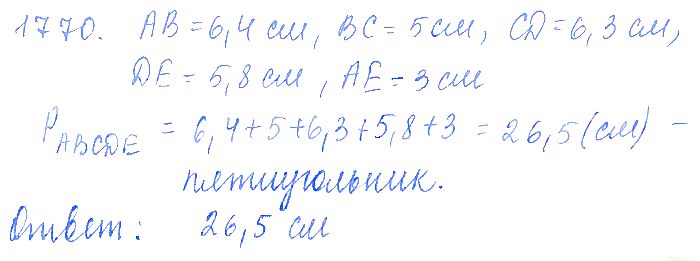 1770. AB = 6,4 см, BC = 5 см, CD = 6,3 см,
DE = 5,8 см, AE = 3 см
P ABCDE = 6,4 + 5 + 6,3 + 5,8 + 3 = 26,5 (см) –
пятиугольник.
Ответ: 26,5 см